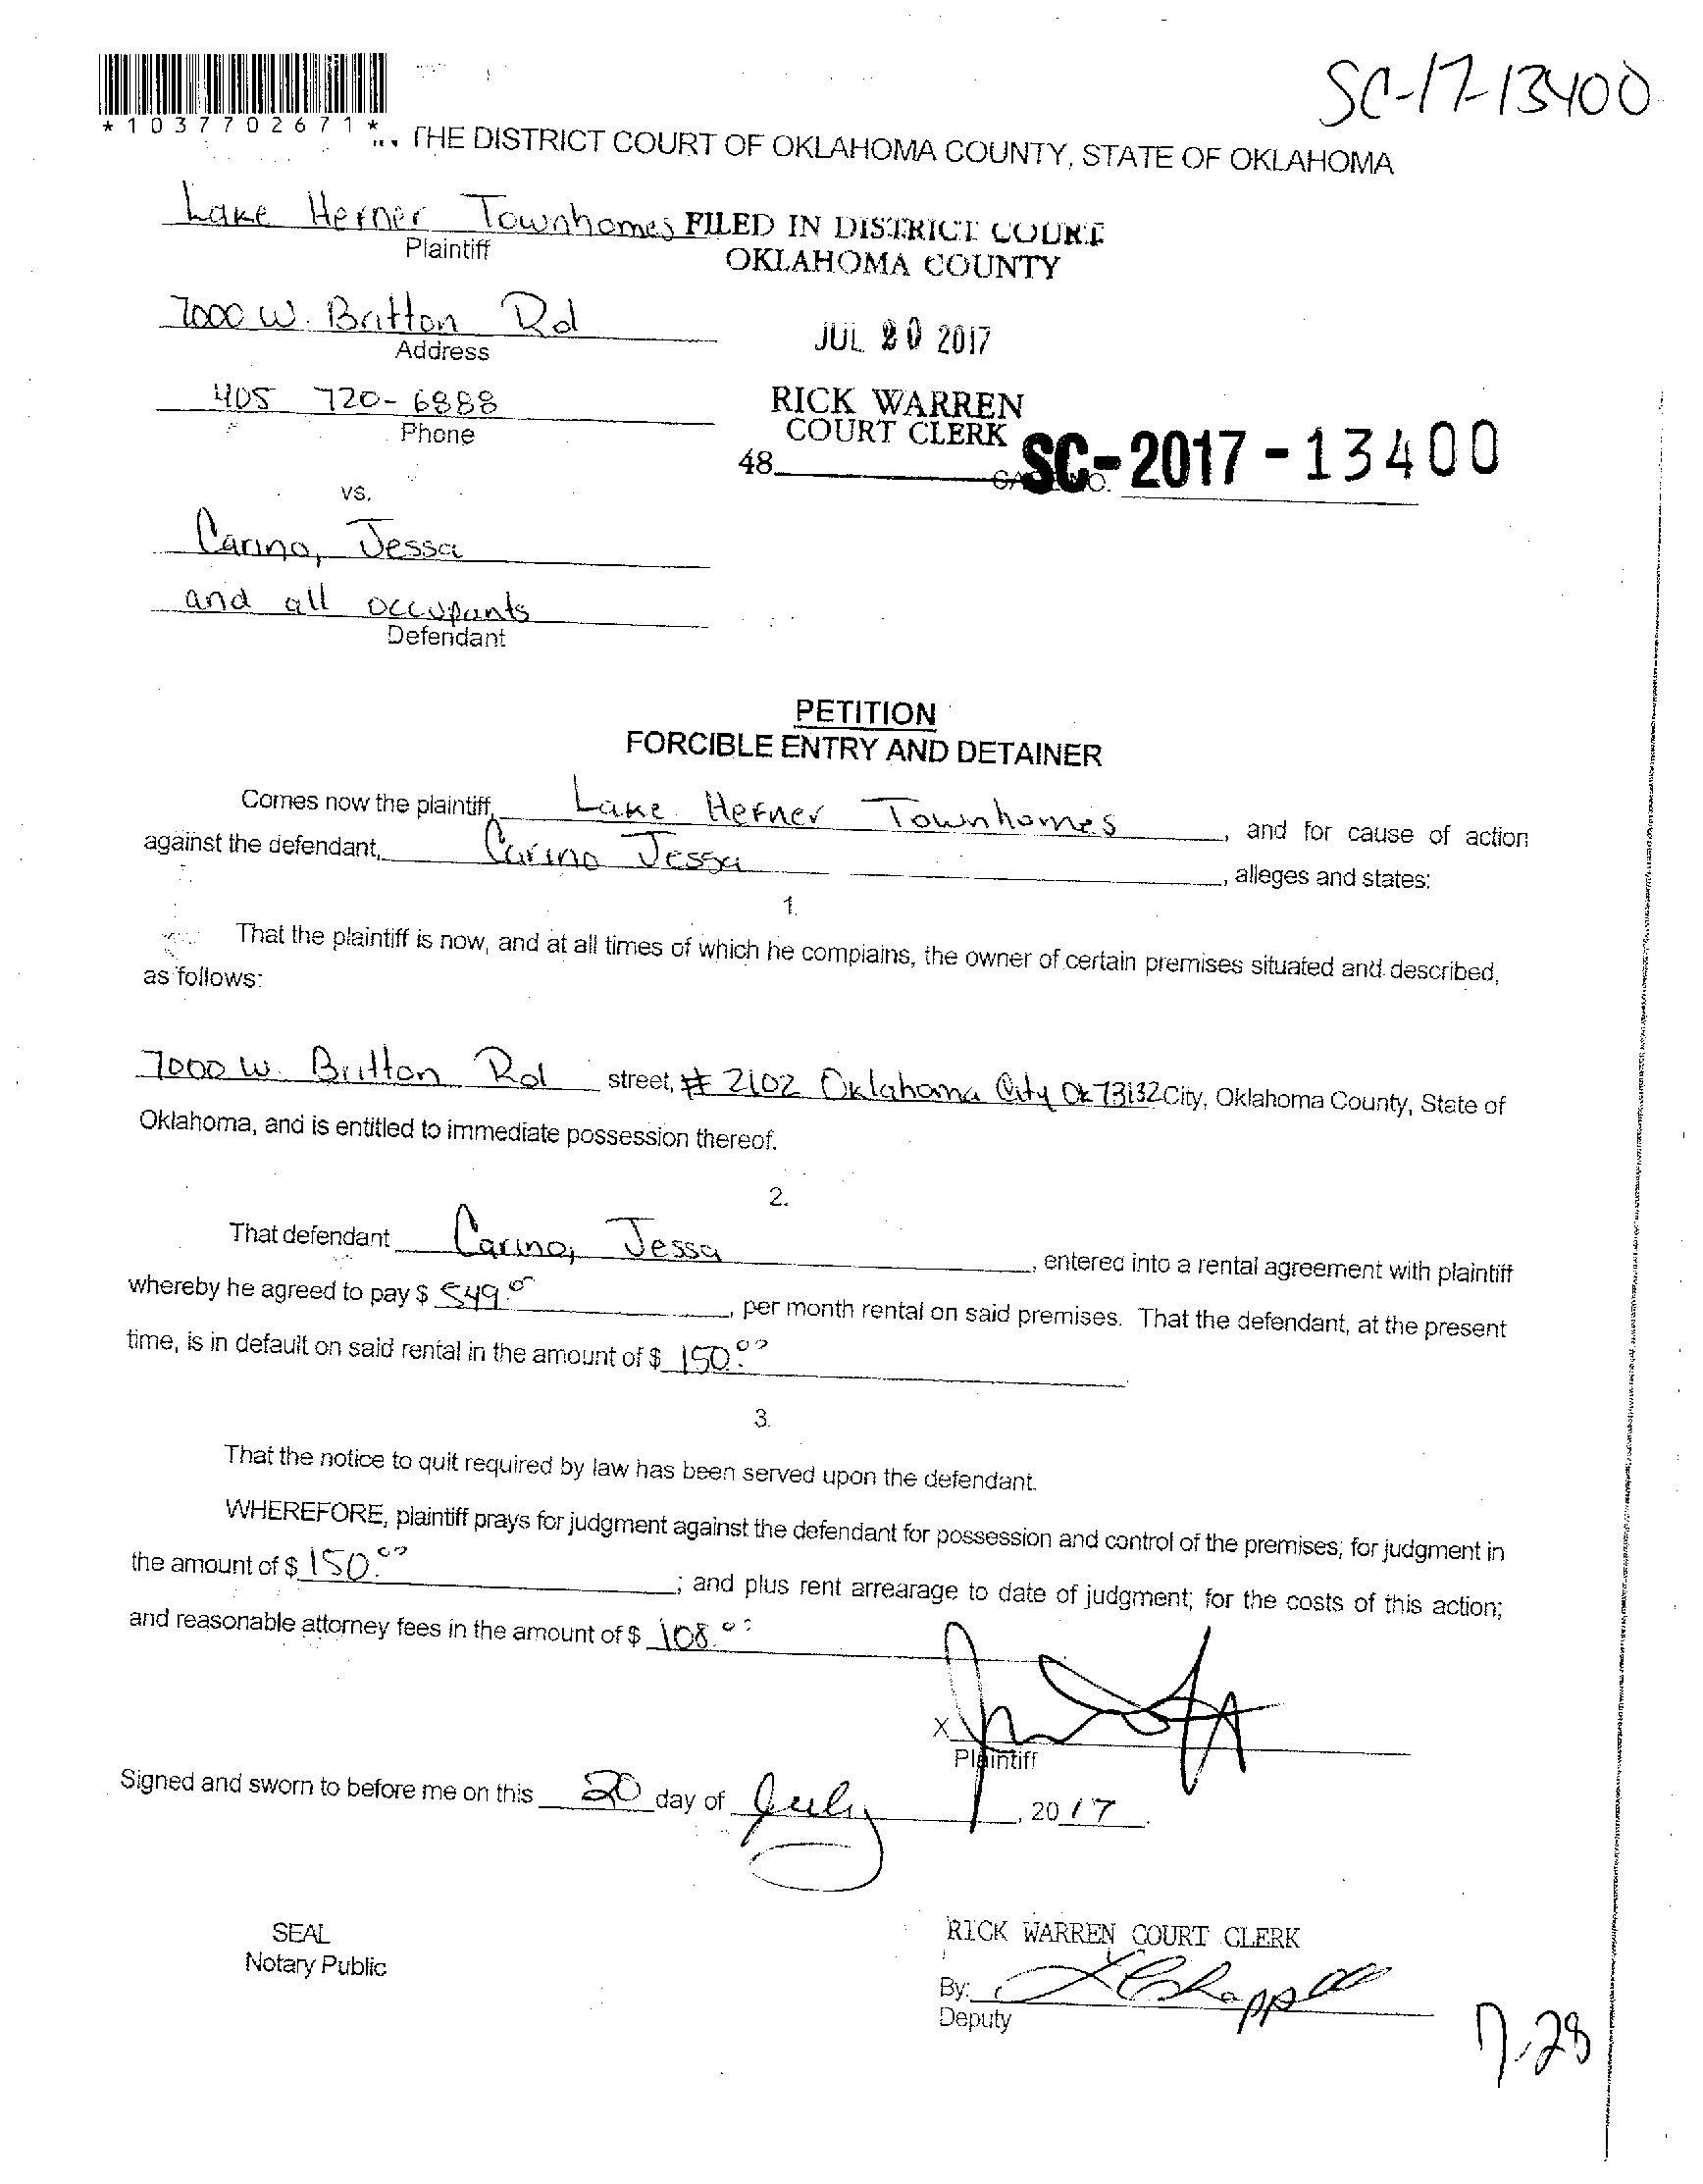 SC-17-13400
*1037702671*
THE DISTRICT COURT OF OKLAHOMA COUNTY, STATE OF OKLAHOMA
Lake Hefner Townhomes FILED IN DISTRICT COURT
Plaintiff
OKLAHOMA COUNTY
7000 W. Britton Rd
Address
JUL 20 2017
405 720-6888
Phone
RICK WARREN
COURT CLERK
48
SC-2017-13400
vs.
Carino, Jessa
and all occupants
Defendant
PETITION
FORCIBLE ENTRY AND DETAINER
Comes now the plaintiff, Lake Hefner Townhomes, and for cause of action
against the defendant, Carino Jessa, alleges and states:
1.
That the plaintiff is now, and at all times of which he complains, the owner of certain premises situated and described,
as follows:
7000 W. Britton Rd street, # 2102 Oklahoma City Ok 73132 City, Oklahoma County, State of
Oklahoma, and is entitled to immediate possession thereof.
2.
That defendant Carino, Jessa, entered into a rental agreement with plaintiff
whereby he agreed to pay $ 549.00, per month rental on said premises. That the defendant, at the present
time, is in default on said rental in the amount of $ 150.00
3.
That the notice to quit required by law has been served upon the defendant.
WHEREFORE, plaintiff prays for judgment against the defendant for possession and control of the premises; for judgment in
the amount of $ 150.00; and plus rent arrearage to date of judgment; for the costs of this action;
and reasonable attorney fees in the amount of $ 108.00
X
Plaintiff
Signed and sworn to before me on this 20 day of July, 2017.
SEAL
Notary Public
RICK WARREN COURT CLERK
By:
Deputy
7.28